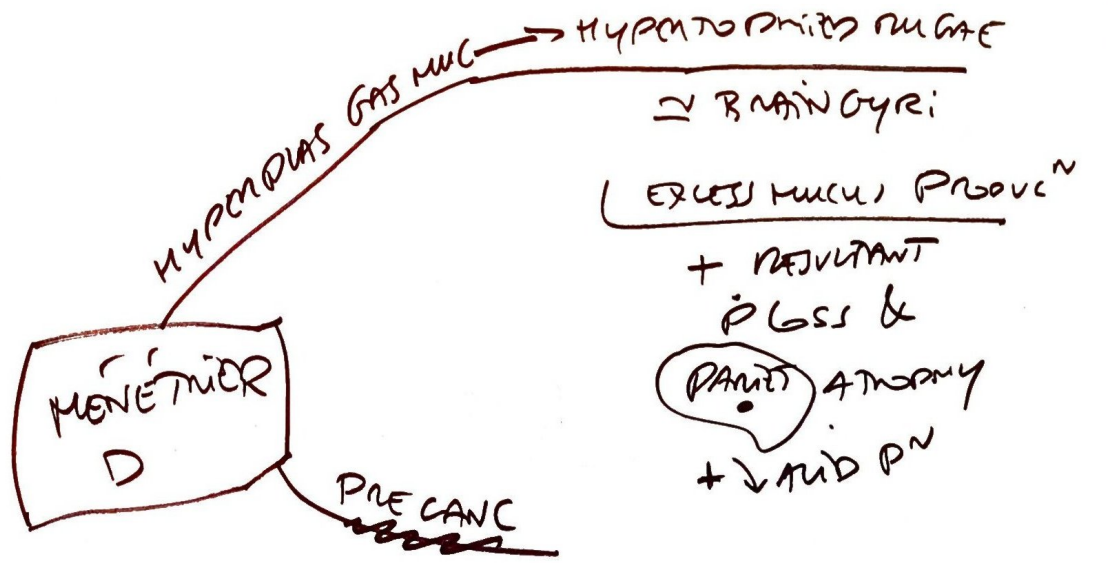 HYPERPLAS GAS MUC → HYPERTOPHIED RUGAE
≃ BRAIN GYRI
EXCESS MUCUS PRODUCᴺ
+ RESULTANT
P LOSS &
PARIET ATROPHY
+ ↓ ACID Pᴺ
MÉNÉTRIER
D
PRECANC